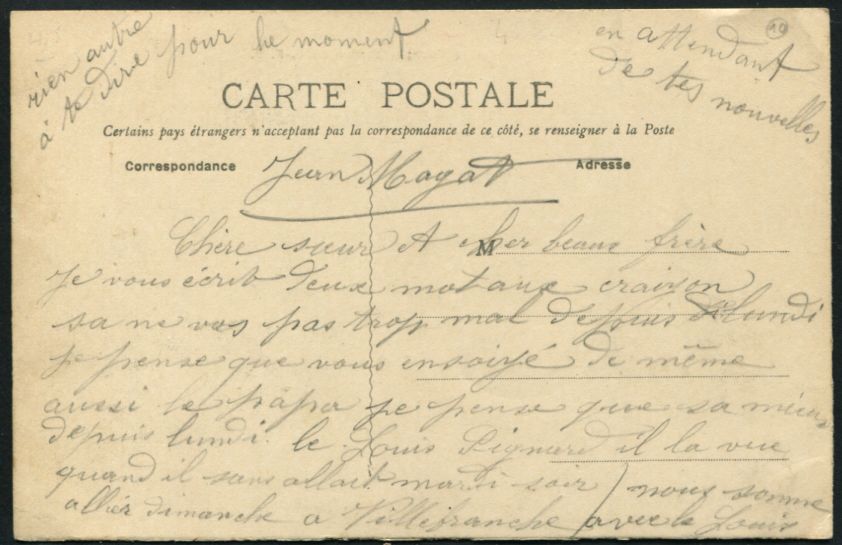 rien autre
à te dire pour le moment
en attendant
de tes nouvelles
10
CARTE POSTALE
Certains pays étrangers n'acceptant pas la correspondance de ce côté, se renseigner à la Poste
Correspondance
Adresse
Jean Magat
M
Chère sœur et cher beau frère
je vous écrit deux mot aux craiyon
sa ne vas pas trop mal depuis lundi
je pense que vous en de même
aussi le papa je pense que sa mieux
depuis lundi. le Louis Pignard il la vue
quand il sans allait mardi soir / nous somme
aller dimanche a Villefranche avec le Louis